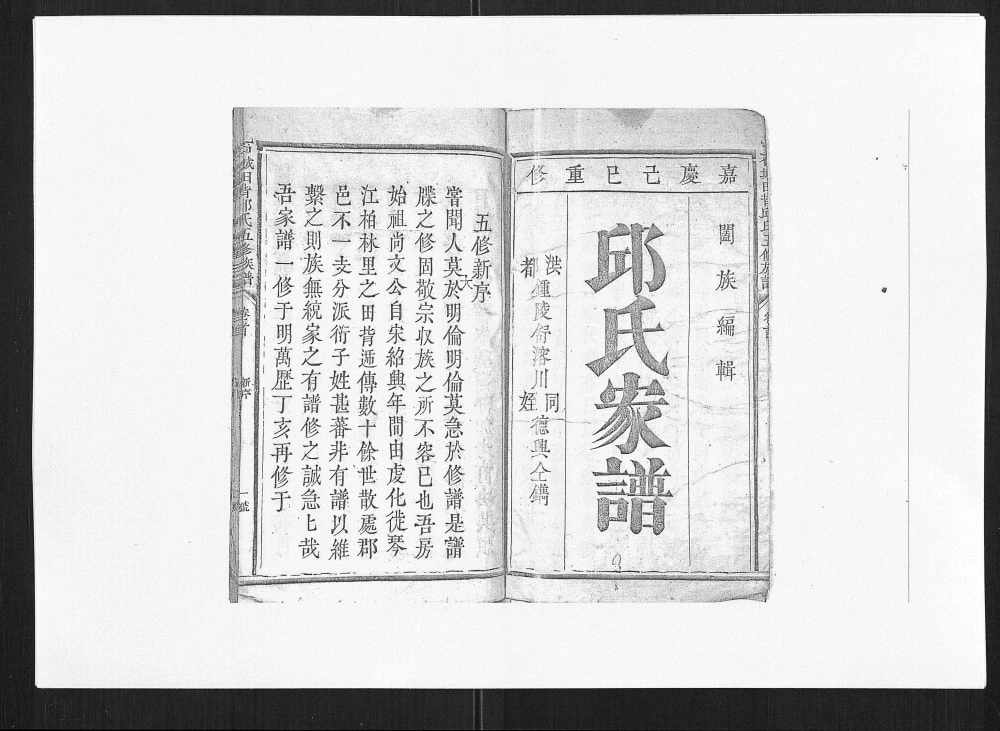 嘉慶己巳重修
闔族編輯
邱氏家譜
洪都鍾陵舒溶川同姪德興仝鐫
五修新序
嘗聞人莫大於明倫明倫莫急於修譜是譜
牒之修固敬宗収族之所不容已也吾房
始祖尚文公自宋紹興年間由虔化徙琴
江柏林里之田背遞傳數十餘世散處郡
邑不一支分派衍子姓甚蕃非有譜以維
繫之則族無統家之有譜修之誠急上哉
吾家譜一修于明萬歷丁亥再修于
石城田背邱氏五修族譜
卷首
新序
一號